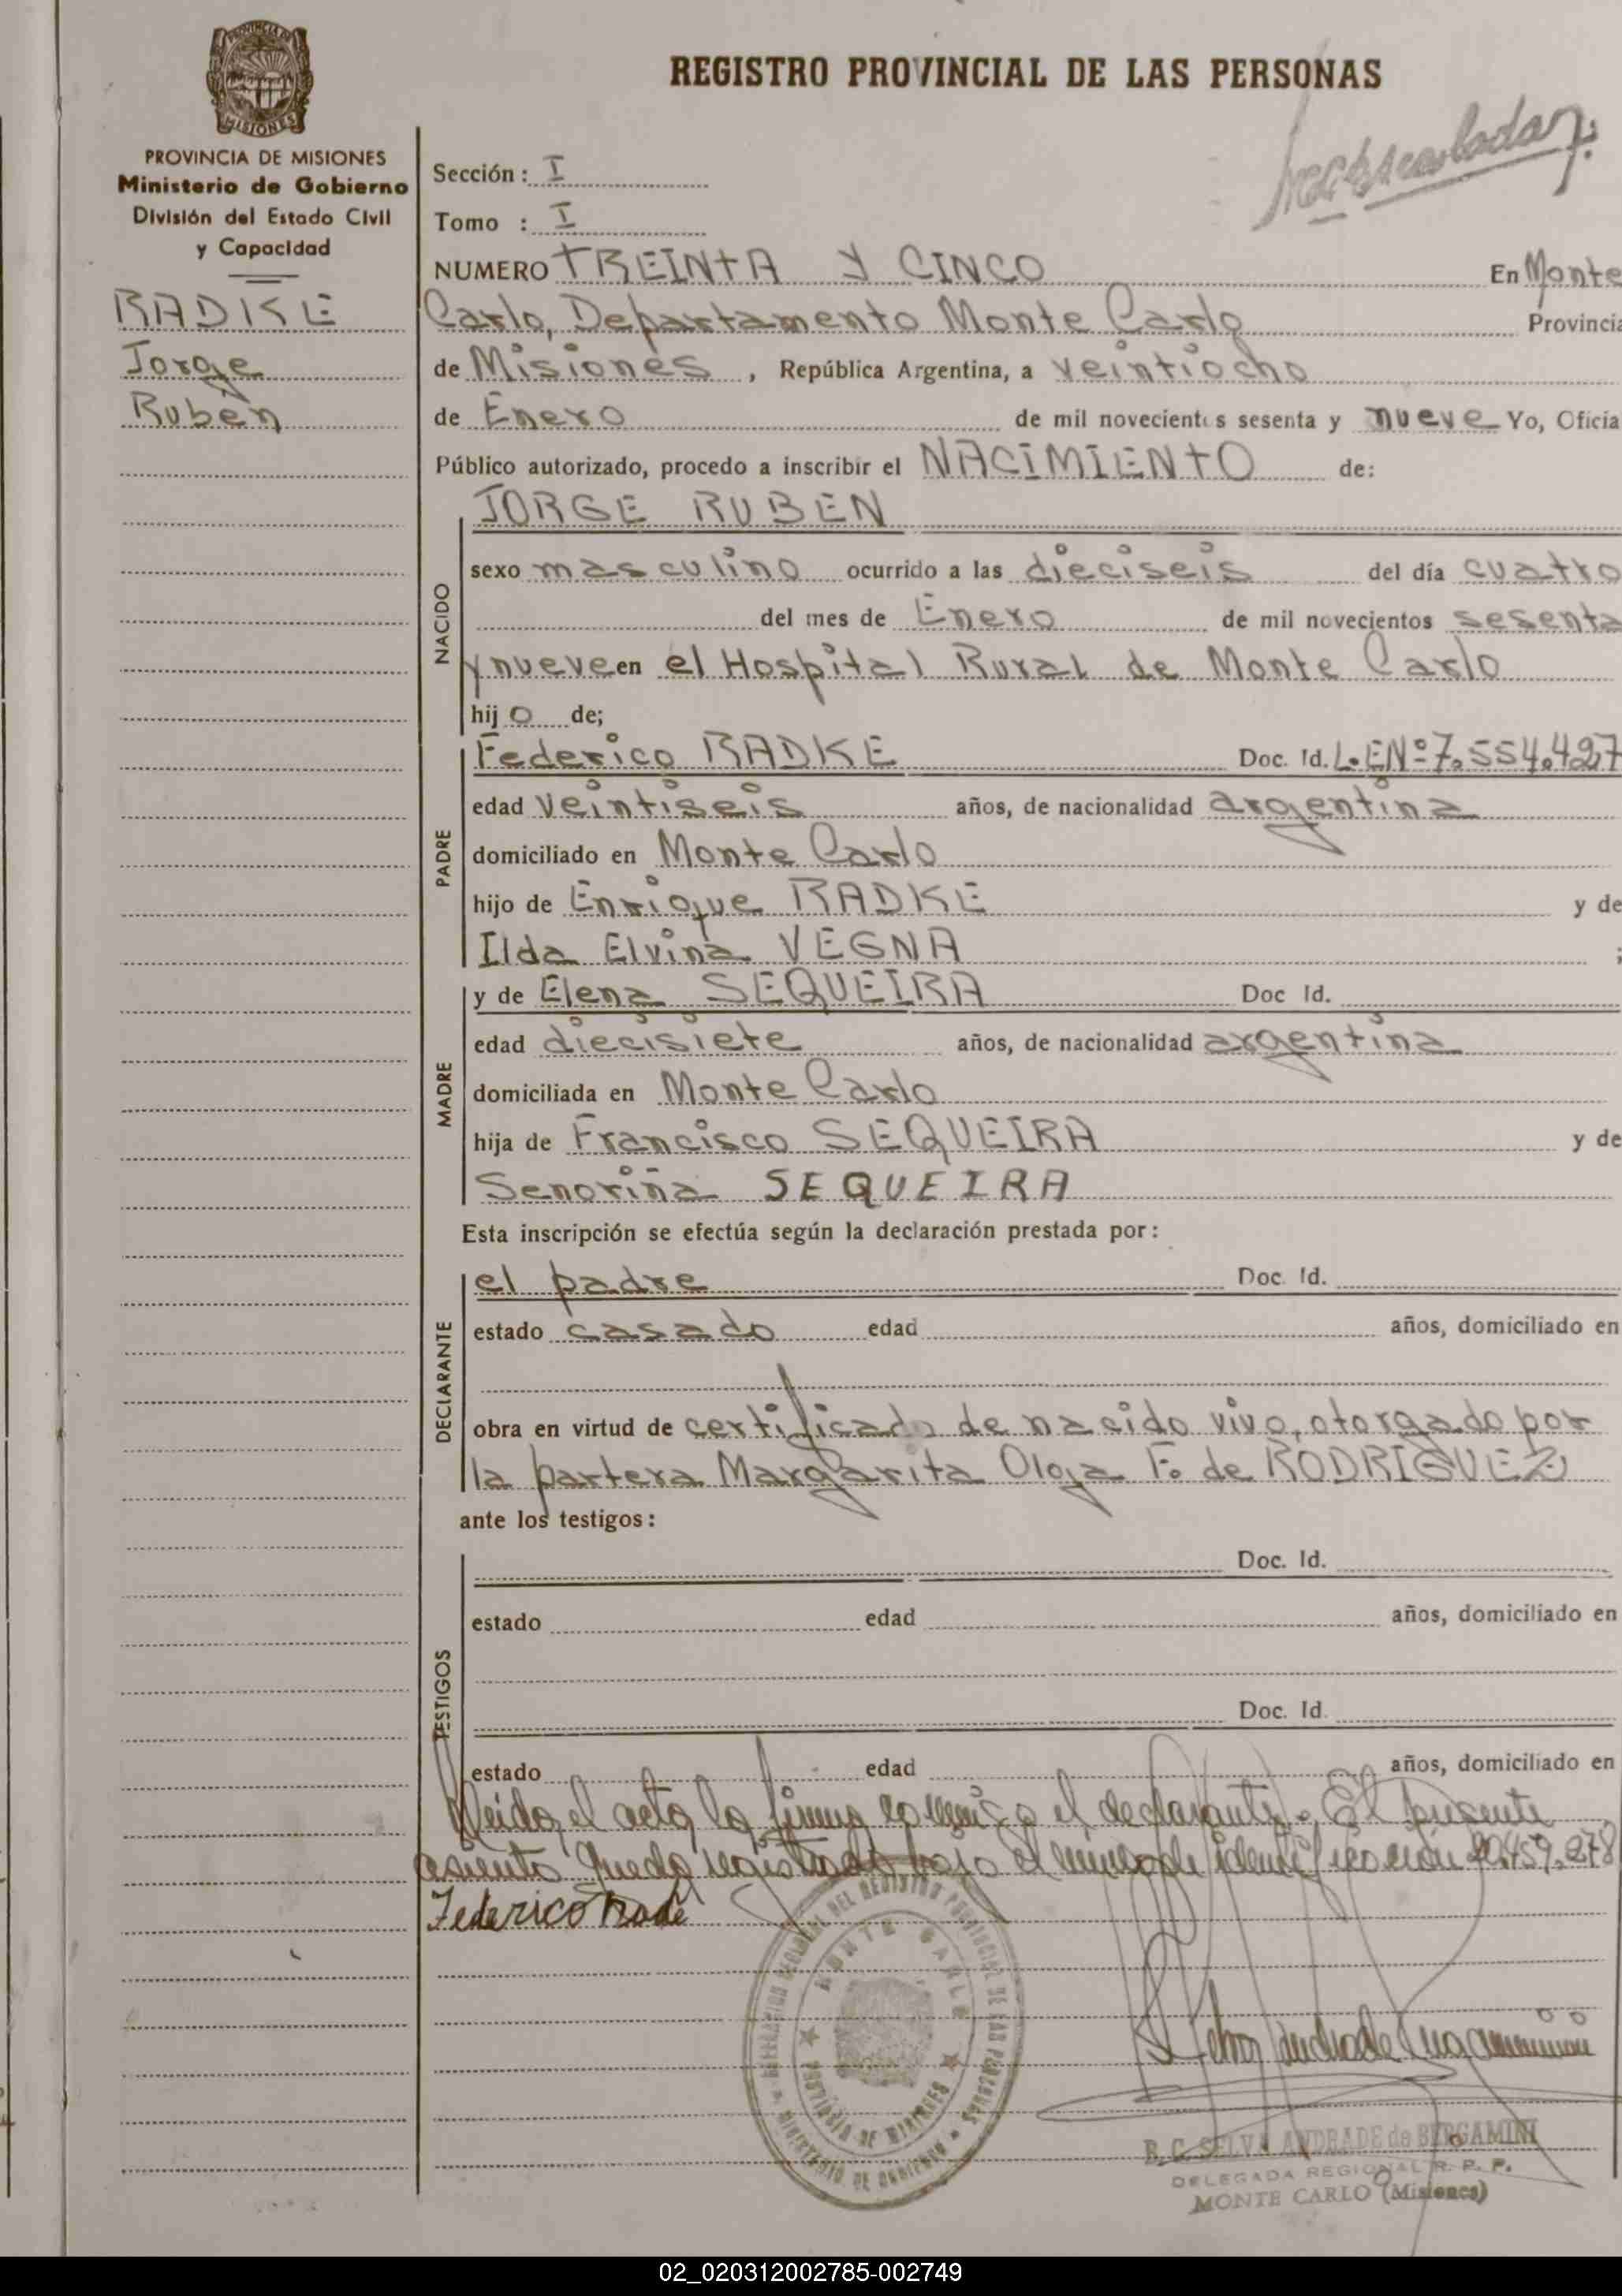 MISIONES
PROVINCIA DE MISIONES
Ministerio de Gobierno
División del Estado Civil
y Capacidad
RADKE
Jorge
Rubén
REGISTRO PROVINCIAL DE LAS PERSONAS
Sección: I
Tomo : I
NUMERO TREINTA Y CINCO En Monte
Carlo, Departamento Monte Carlo Provincia
de Misiones, República Argentina, a veintiocho
de Enero de mil novecientos sesenta y nueve Yo, Oficia
Público autorizado, procedo a inscribir el NACIMIENTO de:
NACIDO
JORGE RUBEN
sexo masculino ocurrido a las dieciseis del día cuatro
del mes de Enero de mil novecientos sesenta
y nueve en el Hospital Rural de Monte Carlo
hijo de;
PADRE
Federico RADKE Doc. Id. L.E.Nº 7.554.427
edad veintiseis años, de nacionalidad argentina
domiciliado en Monte Carlo
hijo de Enrique RADKE y de
Ilda Elvina VEGNA ;
MADRE
y de Elena SEQUEIRA Doc Id.
edad diecisiete años, de nacionalidad argentina
domiciliada en Monte Carlo
hija de Francisco SEQUEIRA y de
Senoriña SEQUEIRA
Esta inscripción se efectúa según la declaración prestada por:
DECLARANTE
el padre Doc. Id.
estado casado edad años, domiciliado en
obra en virtud de certificado de nacido vivo, otorgado por
la partera Margarita Olga F. de RODRIGUEZ
ante los testigos:
TESTIGOS
Doc. Id.
estado edad años, domiciliado en
Doc. Id.
estado edad años, domiciliado en
Leida el acta la firma conmigo el declarante. El presente
asiento queda registrado bajo el número de identificación 20.459.278
Federico
MONTE CARLO
PROVINCIA DE MISIONES
MINISTERIO DE GOBIERNO
B. C. SELVA ANDRADE de BERGAMINI
DELEGADA REGIONAL R. P. P.
MONTE CARLO (Misiones)
02_020312002785-002749